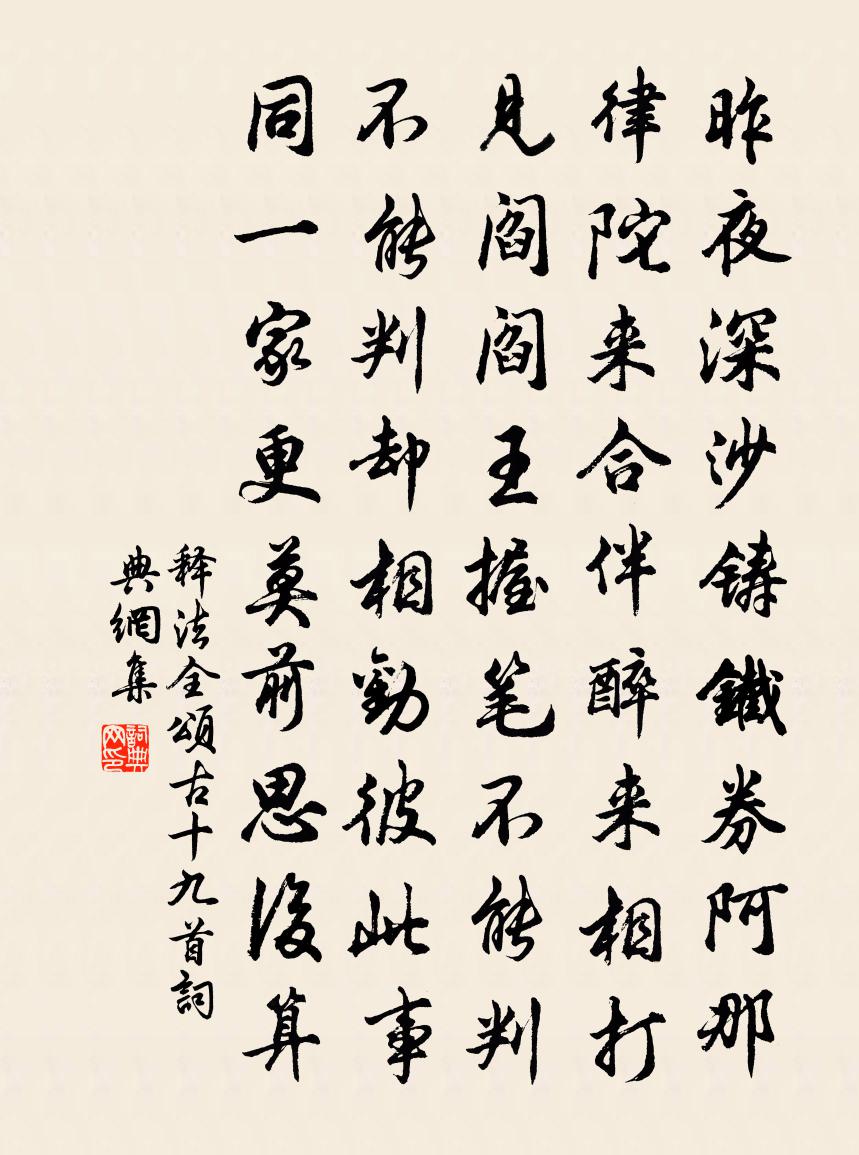 昨夜深沙铸鐵券阿那
律陀来合伴醉来相打
見阎阎王握笔不能判
不能判却相勸彼此事
同一家更莫前思後算
释法全頌古十九首詞
典網集
詞典
网印